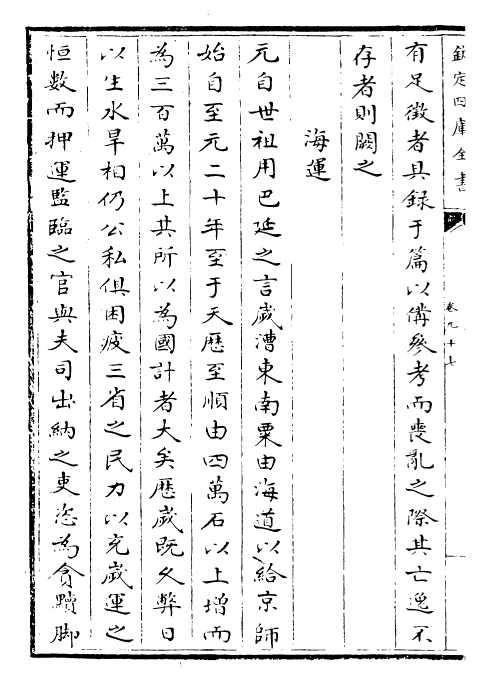 欽定四庫全書
卷九十七
有足徵者具録于篇以備參考而喪亂之際其亡逸不
存者則闕之
海運
元自世祖用巴延之言歲漕東南粟由海道以給京師
始自至元二十年至于天歷至順由四萬石以上增而
為三百萬以上其所以為國計者大矣歷歲既久弊日
以生水旱相仍公私俱困疲三省之民力以充歲運之
恒數而押運監臨之官與夫司出納之吏恣為貪黷脚